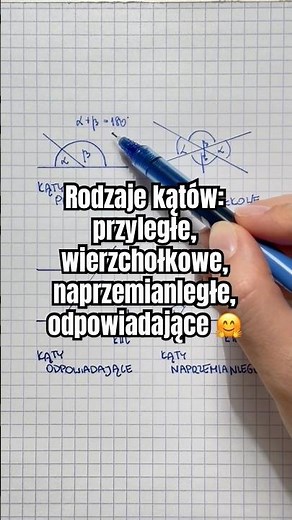 α+β=180°
α β
α α
β
KĄTY
Rodzaje kątów:
przyległe,
wierzchołkowe,
naprzemianległe,
odpowiadające 🤗
KĄTY KĄTY
ODPOWIADAJĄCE NAPRZEMIANLEGŁE